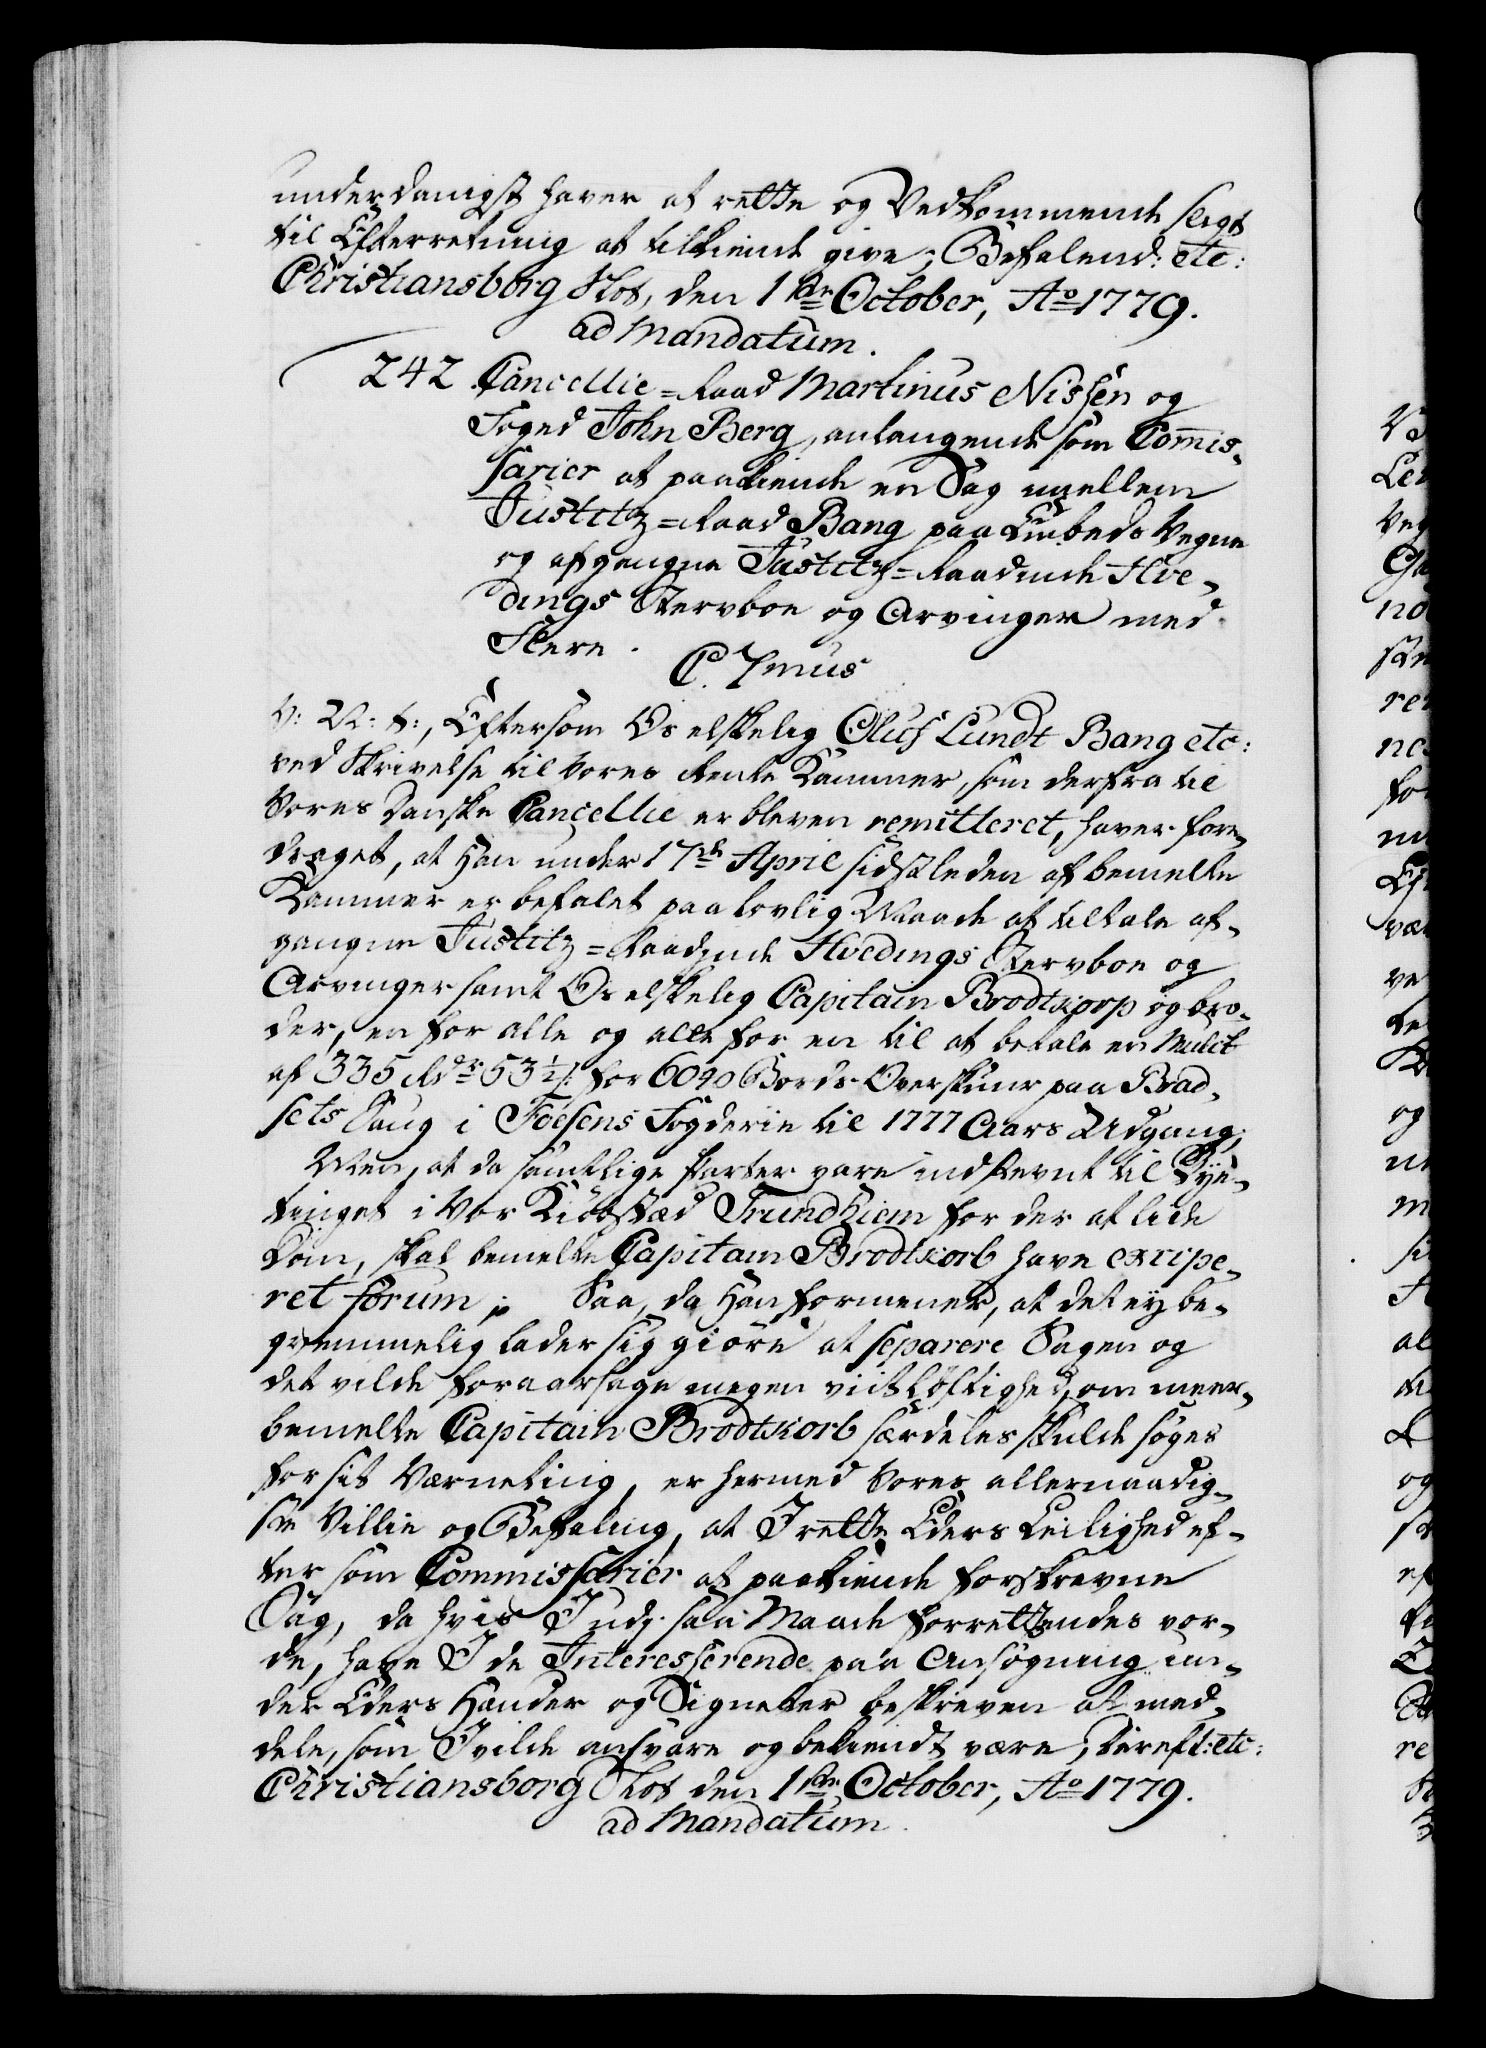 underdanigst haver at rette og Vedkommende sligt
til Efterretning at tilkiende give; Befalend: etc:
Christiansborg Slot, den 1ste October, Ao 1779.
ad Mandatum.
242 Cancellie=Raad Martinus Nissen og
Foged John Berg, anlangende som Com̄is-
sarier at paakiende en Sag mellem
Justitz=Raad Bang paa Embeds Vegne
og afgangne Justitz=Raadinde Hve-
dings Stervboe og Arvinger med
Flere.
C. 7mus
V: W: t:, Eftersom Os elskelig Oluf Lundt Bang etc:
ved Skrivelse til Vores Rente Kammer, som derfra til
Vores Danske Cancellie er bleven remitteret, haver fore-
draget, at Han under 17de April sidstleden af bemelte
Kammer er befalet paa lovlig Maade at tiltale af-
gangne Justitz=Raadinde Hvedings Stervboe og
Arvinger samt Os elskelig Capitain Brodtkorp og bro-
der, en for alle og alle for en til at betale en Mulct
af 335 Rdr 53½ s. for 6090 Bords Overskuur paa Brad-
sets Saug i Foesens Fogderie til 1777 Aars Udgang;
Men, at da samtlige Parter vare indstevnt til Bye-
tinget i Vor Kiøbstæd Trundhiem for der at lide
Dom, skal bemelte Capitain Brodtkorb have excipe-
ret forum; Saa, da Han formener, at det ey be-
qvemmelig lader sig giøre at separere Sagen og
det vilde foraarsage megen viitløftighed, om meer-
bemelte Capitain Brodtkorb særdeles skulde søges
for sit Værneting, er hermed Vores allernaadig-
ste Villie og Befaling, at I rette Eders Leilighed ef-
ter som Commissarier at paakiende forskrevne
Sag, da hvis I udj saa Maade forrettendes vor-
de, have I de Interesserende paa Ansøgning un-
der Eders Hænder og Signeter beskreven at med-
dele, som I vilde ansvare og bekiendt være, Dereft: etc:
Christiansborg Slot den 1ste October, Ao 1779.
ad Mandatum.